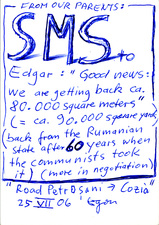 FROM OUR PARENTS:
SMS to
Edgar: "Good news:
we are getting back ca.
80.000 square meters"
(= ca. 90.000 square yard)
(back from the Rumanian
state after 60 years when
the communists took
it) (more in negotiation)
"Road Petroșani → Cozia"
25 VII 06